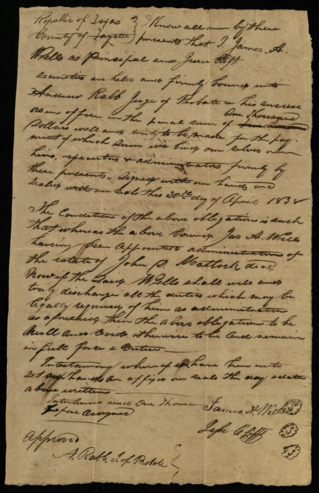 Republic of Texas } Know all men by these
County of Fayette } presents that I James A.
Wells as Principal and Jesse
securities are held and firmly bound unto
Andrew Rabb Juge of Probate & his success
ors in office in the penal sum of One thousand
Dollars well and truly to be made for the pay
ment of which sum we bind our selves our
heirs, executors & administrators firmly by
these presents. Signed with our hands and
Sealed with our Seals this 30th day of April 1838
The Condition of the above obligation is such
that whereas the above bound Jas A. Wells
having been appointed administrator of
the estate of John P. Matlock decd
Now if the said Wells shall well and
truly discharge all the duties which may be
legally required of him as administrator
as aforesaid then the above obligation to be
Null and Void otherwise to be and remain
in full force & virtue
In testimony wherof we have here unto
set our hands and affixed our seals the day & date
above written
interlined and One Thousand
before assigned
James A. Wells
Jesse
Approved
A. Rabb J. of Probate